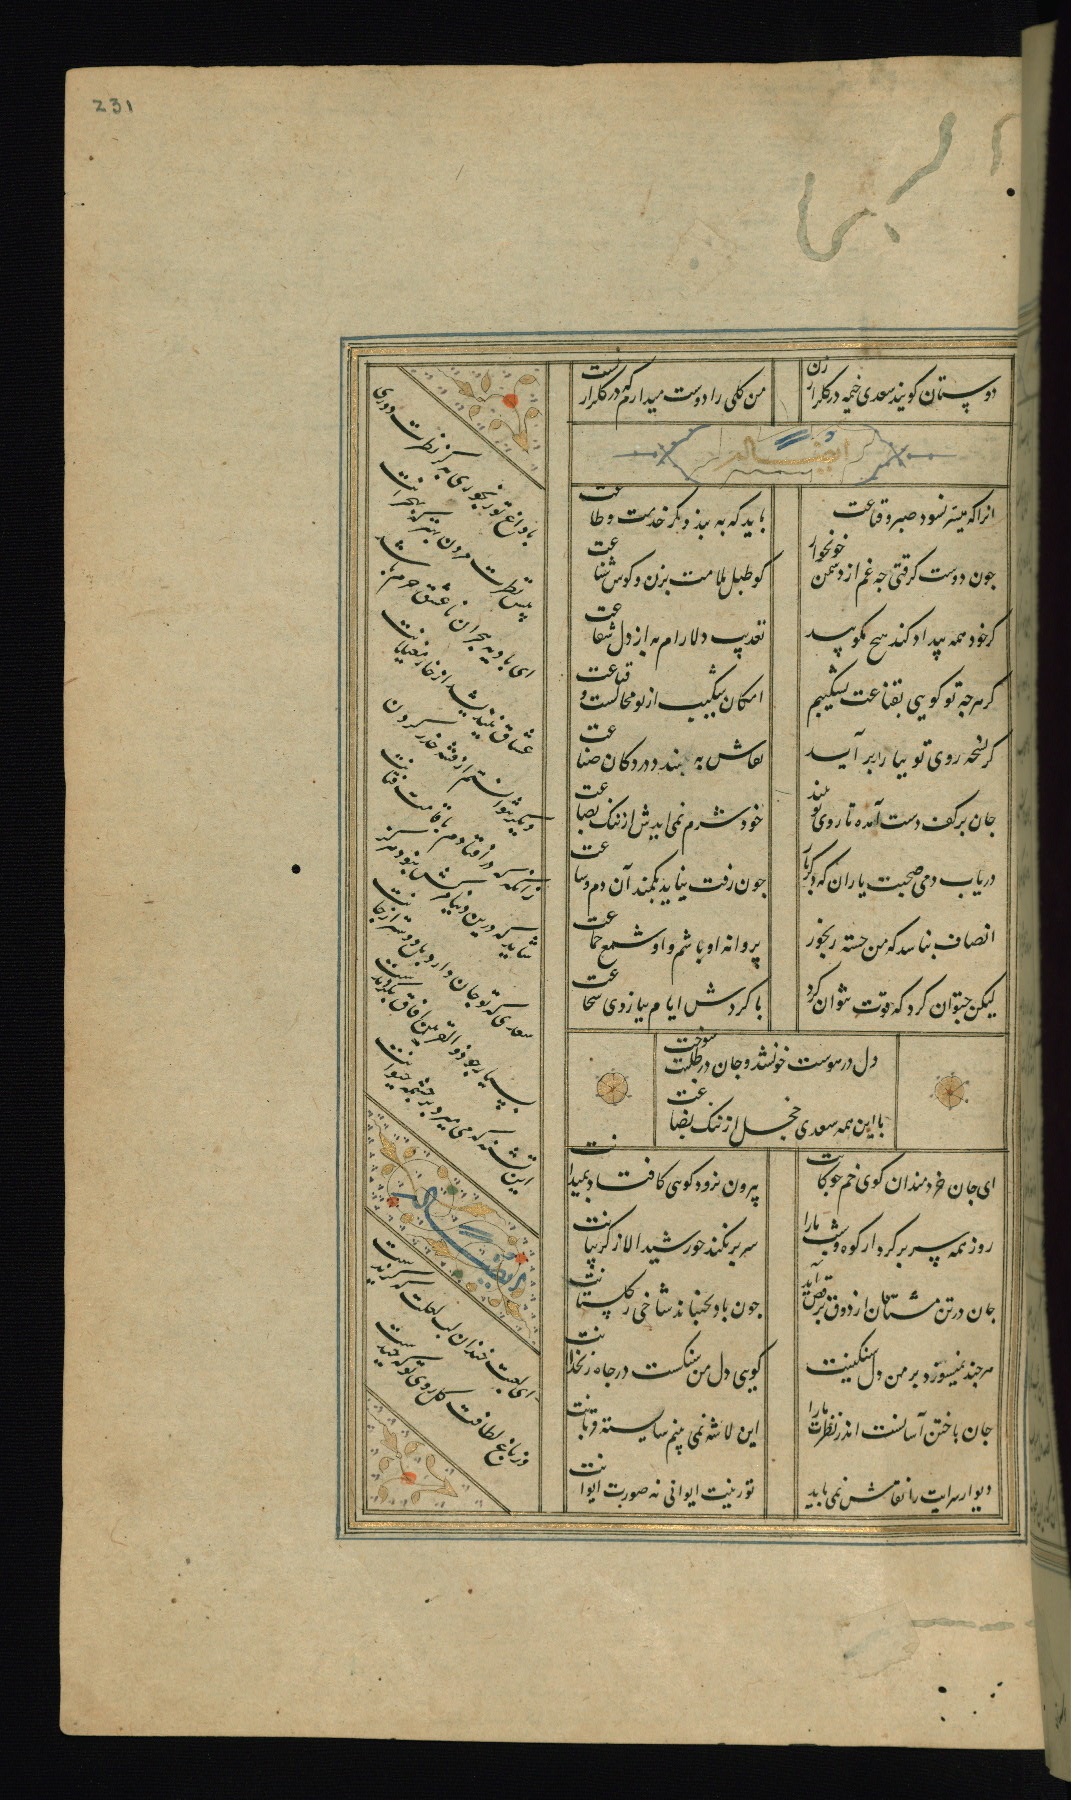 231
دوستان گویند سعدی خیمه در گلزار زن
من گلی را دوست میدارم که در گلزار نیست
ایضاً له
انرا که میسر نشود صبر و قناعت
باید که ببندد کمر خدمت و طاعت
چون دوست گرفتی چه غم از دشمن خونخوار
کو طبل ملامت بزن و کوس شناعت
گر خود همه بیداد کند هیچ مگویید
تعذیب دلارام به از دل شفاعت
گر هر چه تو گویی بقناعت بشکیبم
امکان شکیب از تو محالست و قناعت
گر نسخه روی تو ببازار بر آید
نقاش ببندد در دکان صناعت
جان بر کف دست آمده تا روی تو بیند
خود شرم نمی آیدش از ننگ بضاعت
دریاب دمی صحبت یاران که دگر بار
چون رفت نیاید بکمند آن دم و ساعت
انصاف نباشد که من خسته رنجور
پروانه او باشم و او شمع جماعت
لیکن چتوان کرد که قوت نتوان کرد
با گردش ایام ببازوی شجاعت
دل در هوست خون شد و جان در طلبت سوخت
با این همه سعدی خجل از ننگ بضاعت
ای جان خردمندان گوی خم چوگانت
بیرون نرود گویی کافتاد بمیدانت
روز همه سر بر کرد از کوه و شب ما را
سر بر نکند خورشید الا ز گریبانت
جان در تن مشتاقان از ذوق برقص آید
چون باد بجنباند شاخی ز گلستانت
هر چند نمیسوزد بر من دل سنگینت
گویی دل من سنگیست در چاه زنخدانت
جان باختن آسانست اندر نظرت ما را
این لاشه نمی بینم شایسته قربانت
دیوار سرایت را نقاش نمی باید
تو زینت ایوانی نه صورت ایوانت
با داغ تو رنجوری به کز نظرت دوری
پیش نظرت مردن بهتر که بهجرانت
ای بادیه هجران تا عشق حرم باشد
عشاق نیندیشند از خار مغیلانت
دیگر نتوانستم از فتنه حذر کردن
زانگه که درافتادم با قامت فتانت
شاید که درین دنیا مرگش نبود هرگز
سعدی که تو جان دارد بل دوستتر از جانت
بسیار چو ذوالقرنین آفاق بگردیدست
این تشنه که می میرد بر چشمه حیوانت
ایضاً له
ای لعبت خندان لب لعلت که گزیدست
وز باغ لطافت گل روی تو که چیدست